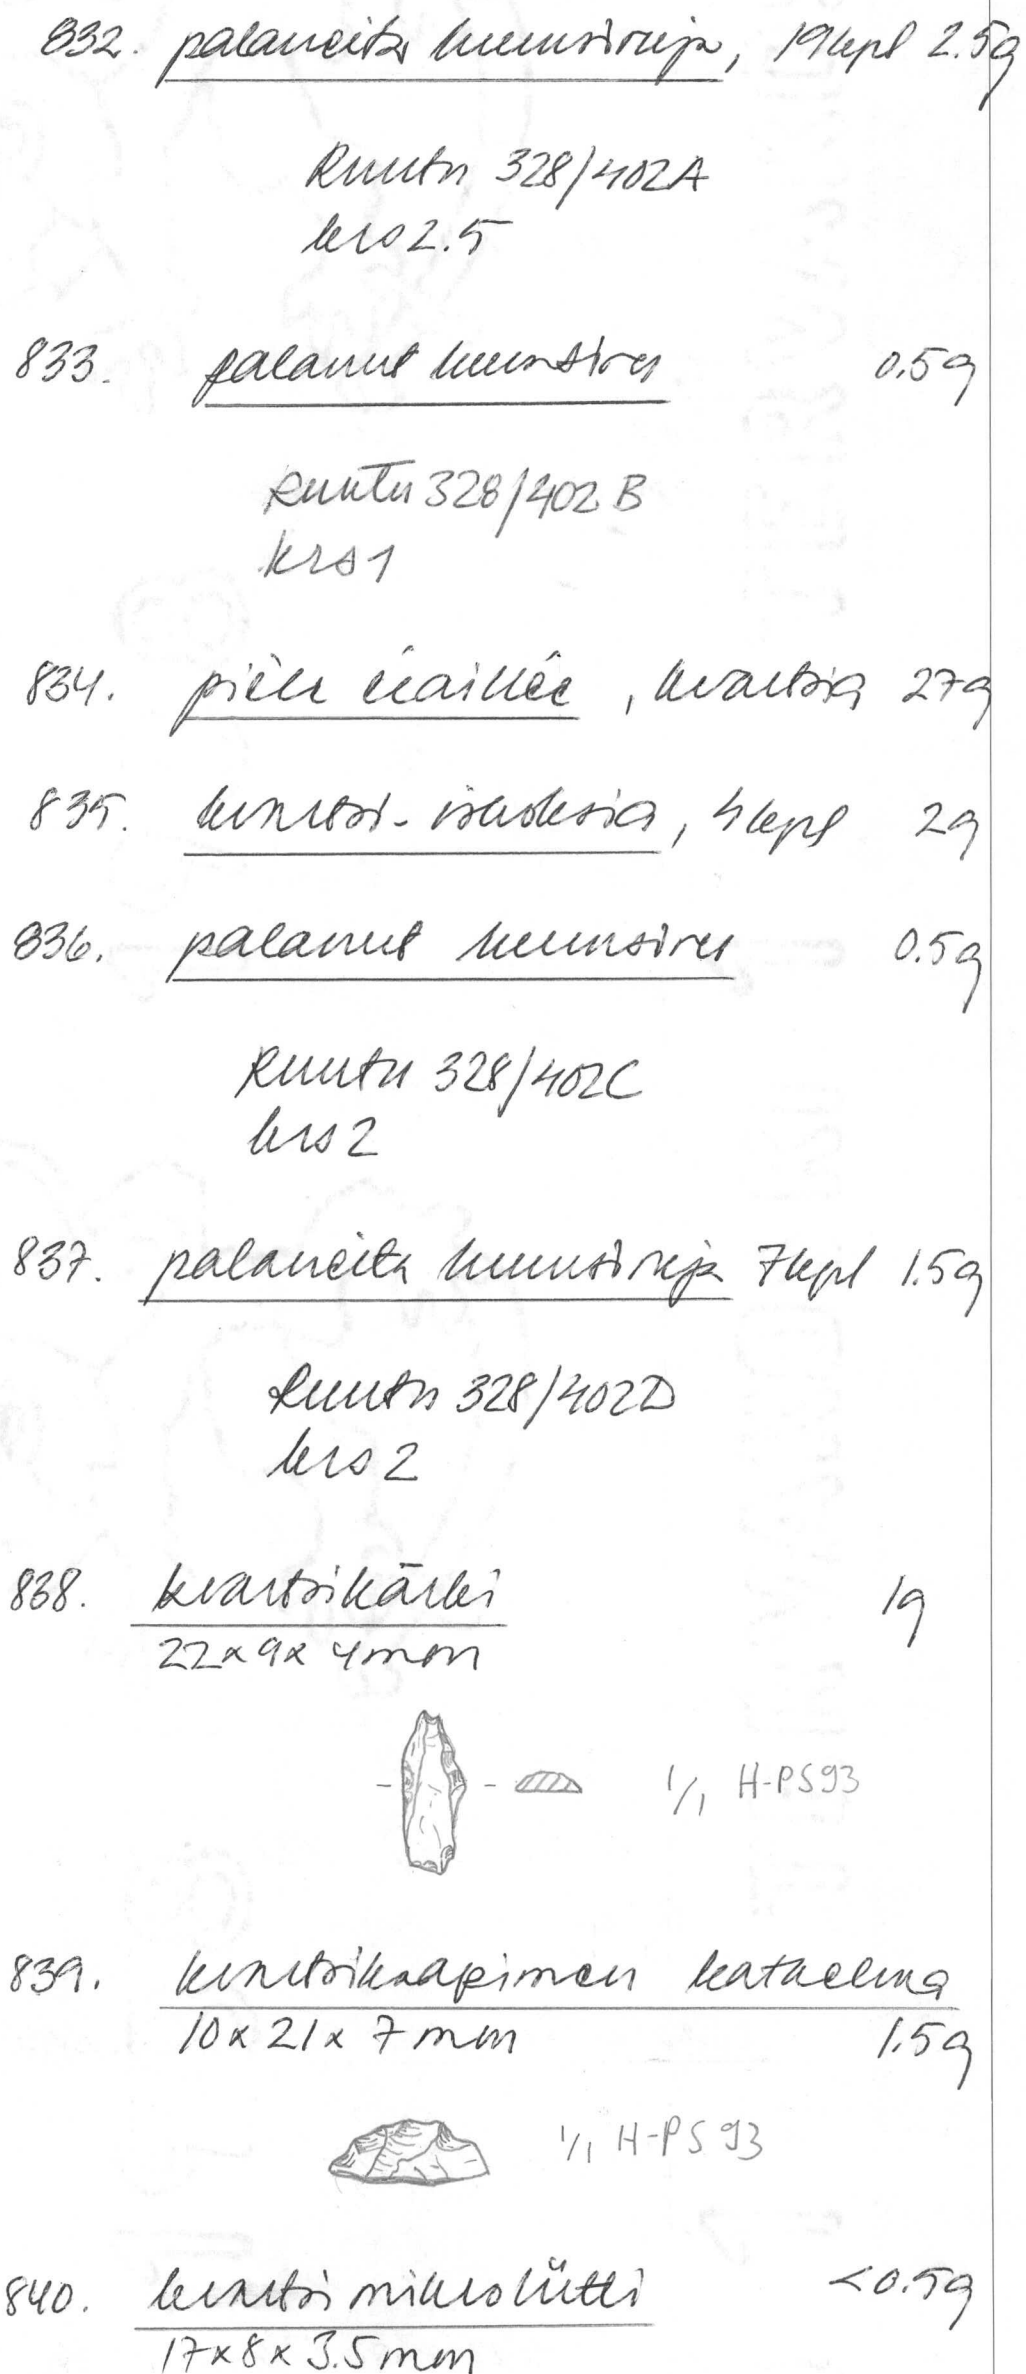 832. palaneita luunsiruja, 19 kpl 2.5g
Ruutu 328/402A
krs 2.5
833. palanut luunsiru 0.5g
Ruutu 328/402 B
krs 1
834. pièce écaillée, kvartsia 27g
835. kvartsi-iskoksia, 4 kpl 2g
836. palanut luunsiru 0.5g
Ruutu 328/402C
krs 2
837. palaneita luunsiruja 7 kpl 1.5g
Ruutu 328/402D
krs 2
838. kvartsikärki 1g
22x9x4mm
1/1 H-PS93
839. kvartsikaapimen katkelma
10x21x7mm 1.5g
1/1 H-PS93
840. kvartsimikroliitti <0.5g
17x8x3.5mm